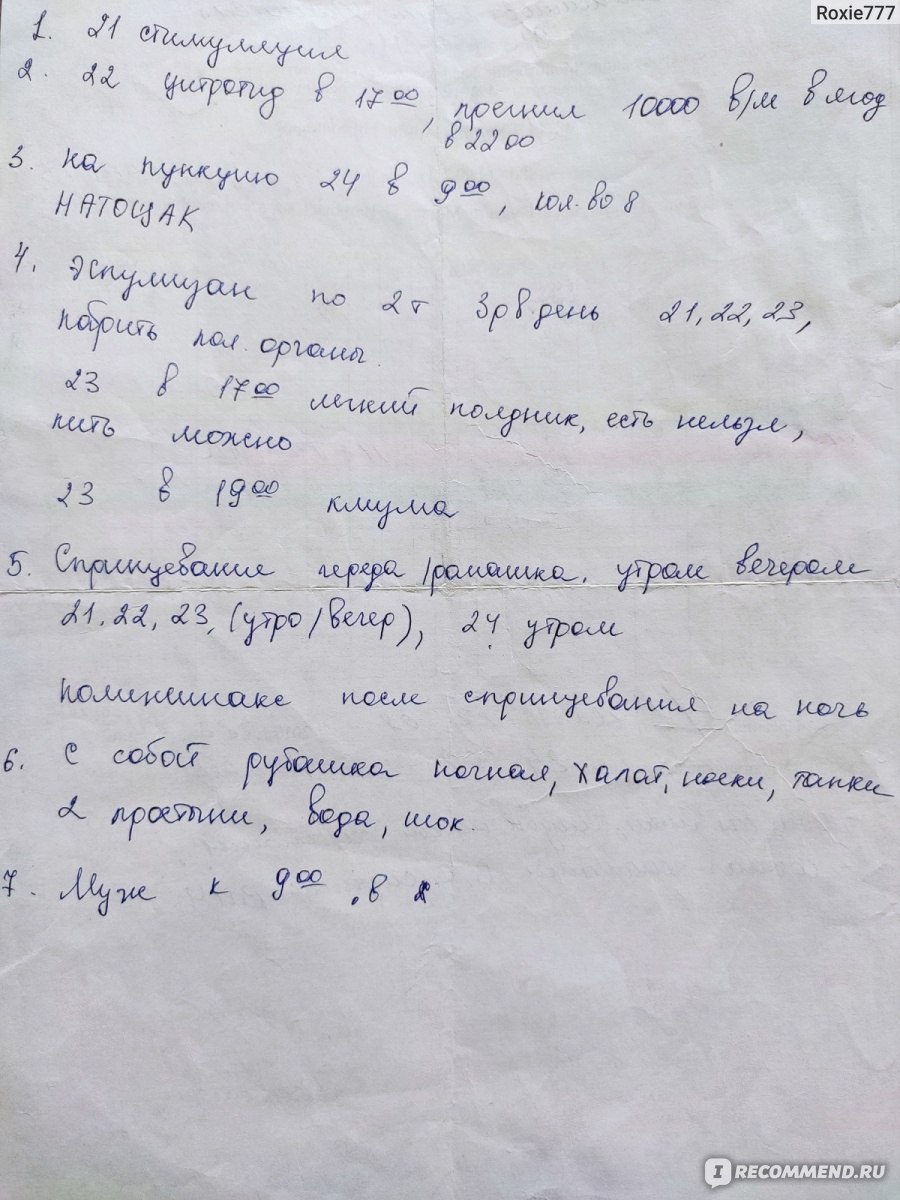 Roxie777
1. 21 стимуляция
2. 22 цитротид в 17 00, прегнил 10000 в/м в ягод
в 22 00
3. на пункцию 24 в 9 00, кол. во 8
НАТОЩАК
4. Эспумизан по 2т 3 р в день 21, 22, 23,
побрить пол. органы.
23 в 17 00 легкий полдник, есть нельзя,
пить можно
23 в 19 00 клизма
5. Спринцевание череда /ромашка, утром вечером
21, 22, 23, (утро/вечер), 24 утром
полижинакс после спринцевания на ночь
6. С собой рубашка ночная, халат, носки, тапки
2 простыни, вода, шок.
7. Муж к 9 00 в
IRECOMMEND.RU